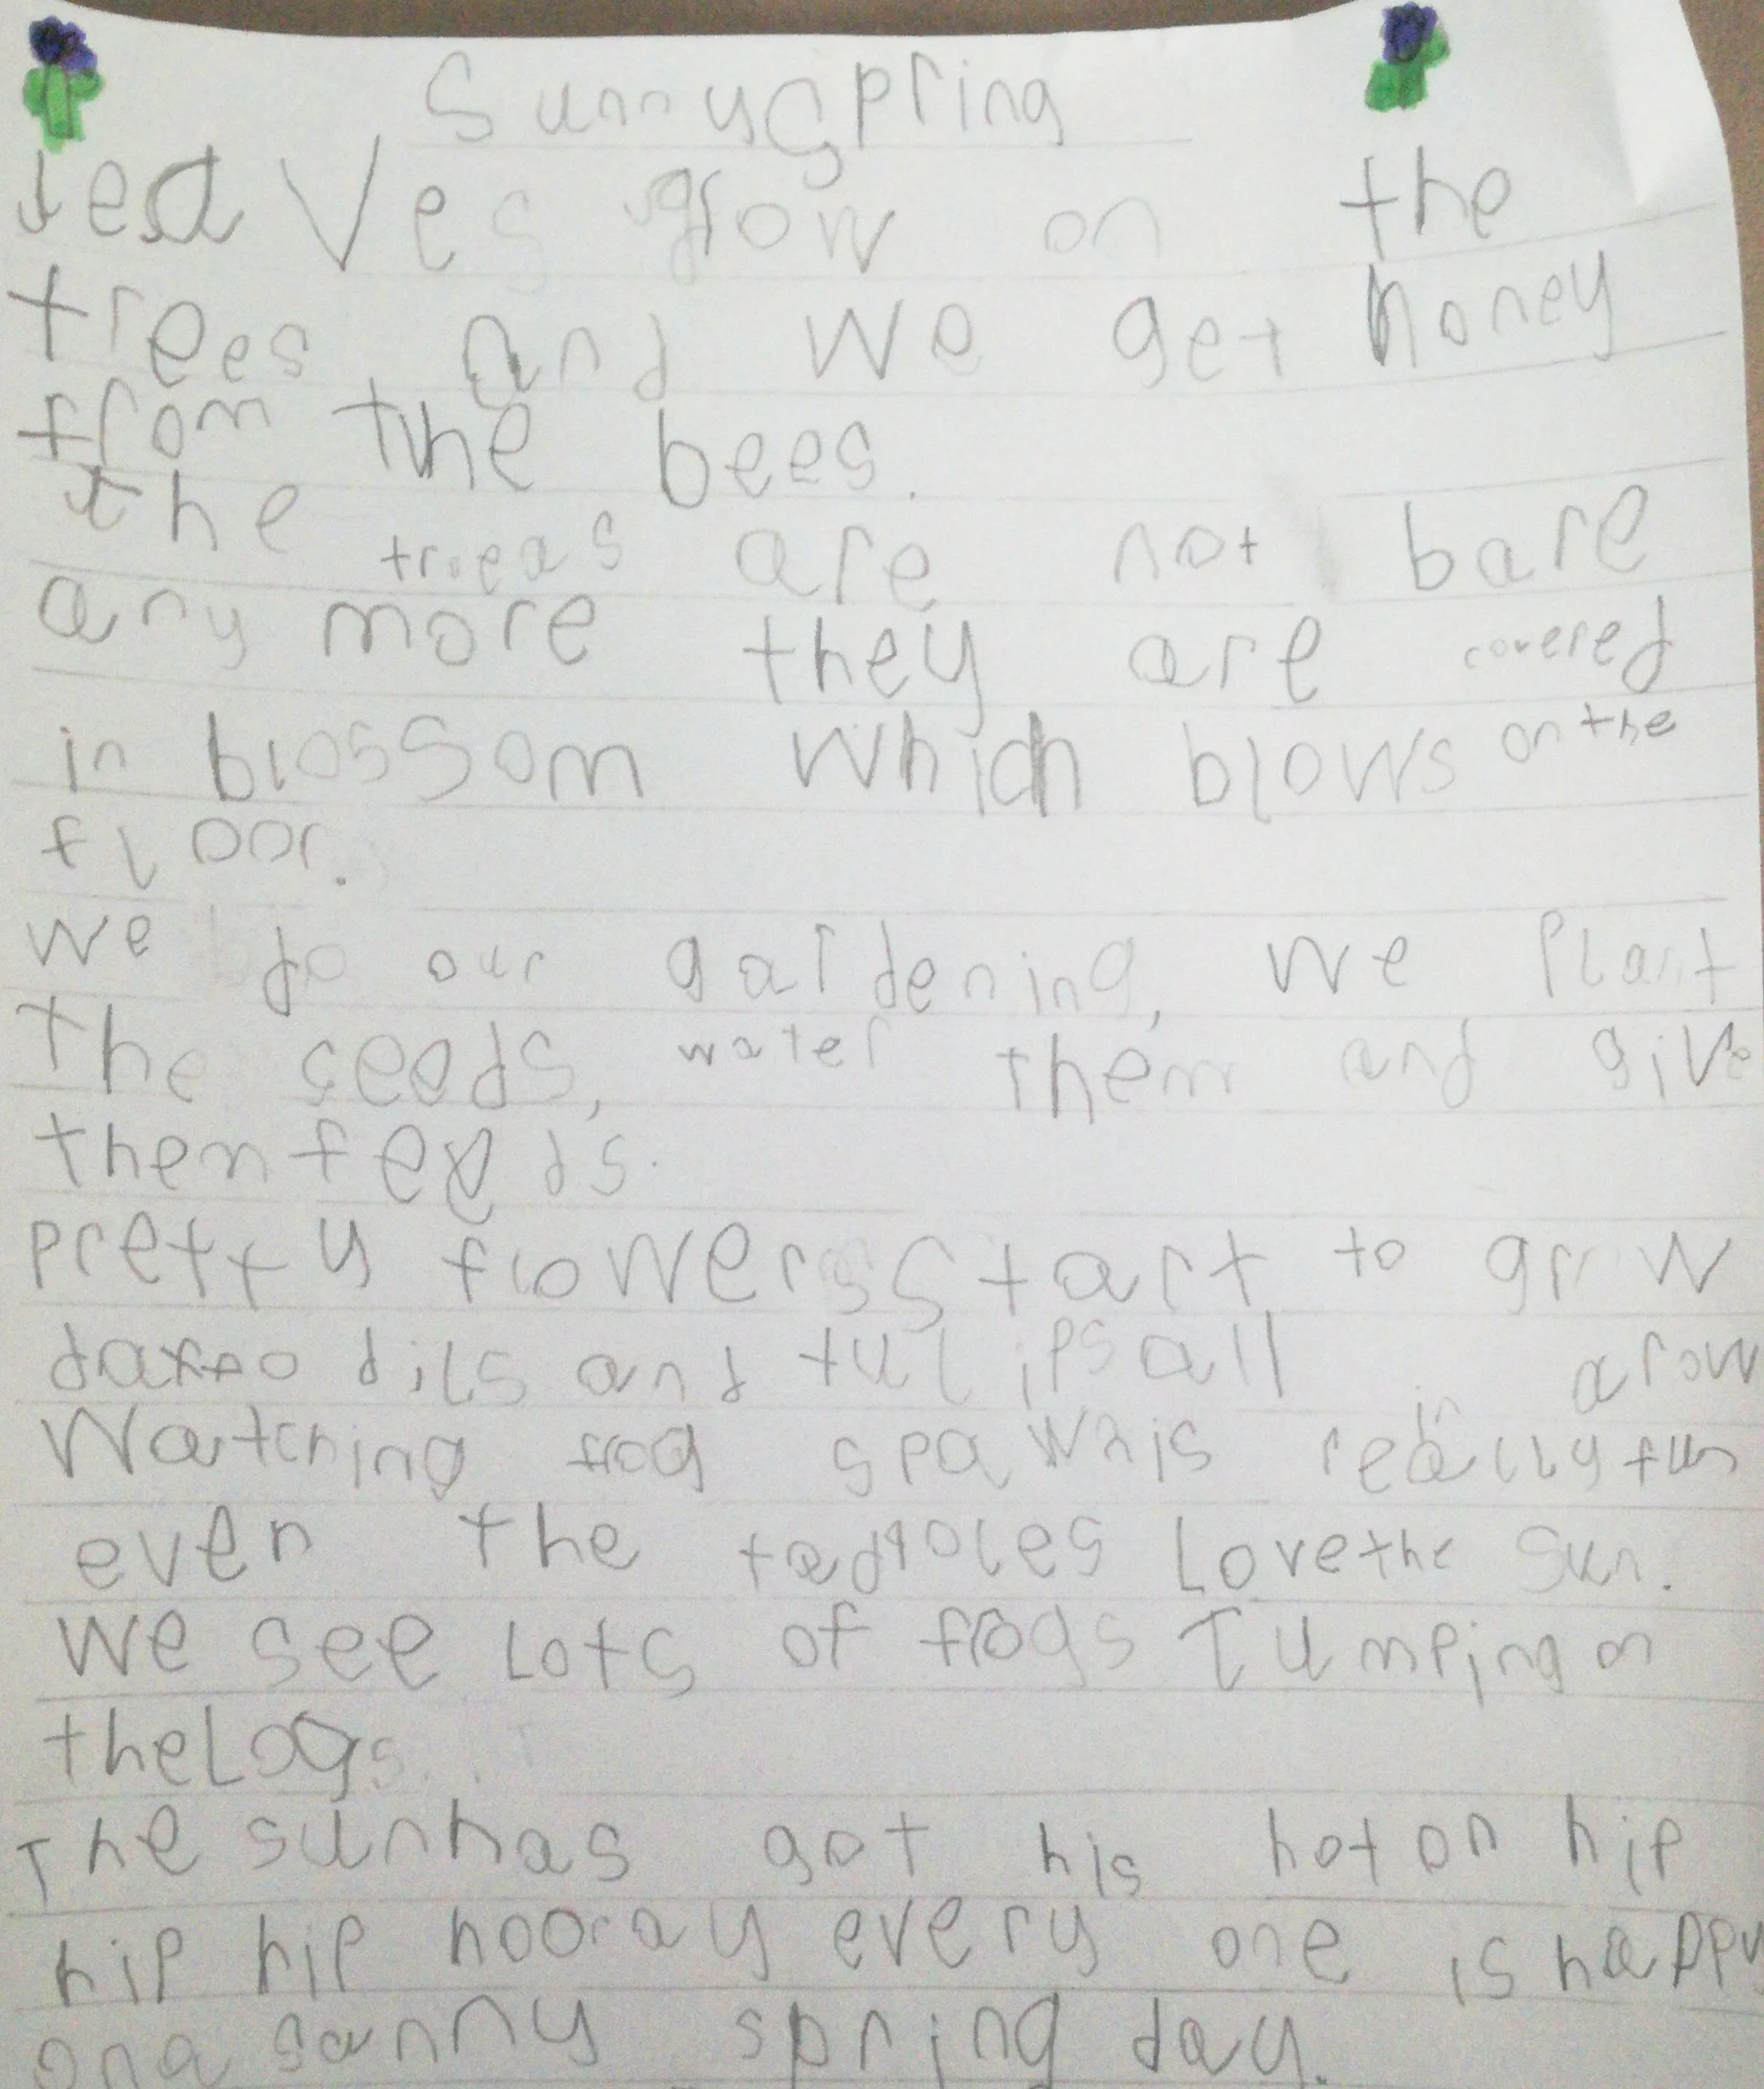 Sunny Spring
leaves grow on the
trees and we get honey
from the bees.
the treeas are not bare
any more they are covered
in blossom which blows on the
floor.
we do our gardening, we Plant
the seeds, water them and give
them feeds.
Pretty flowers start to grow
daffodils and tulips all in a row
Watching frog spawn is really fun
even the tadpoles Love the sun.
we see Lots of frogs Jumping on
the Logs.
The sun has got his hat on hip
hip hip hooray every one is happy
on a sunny spring day.